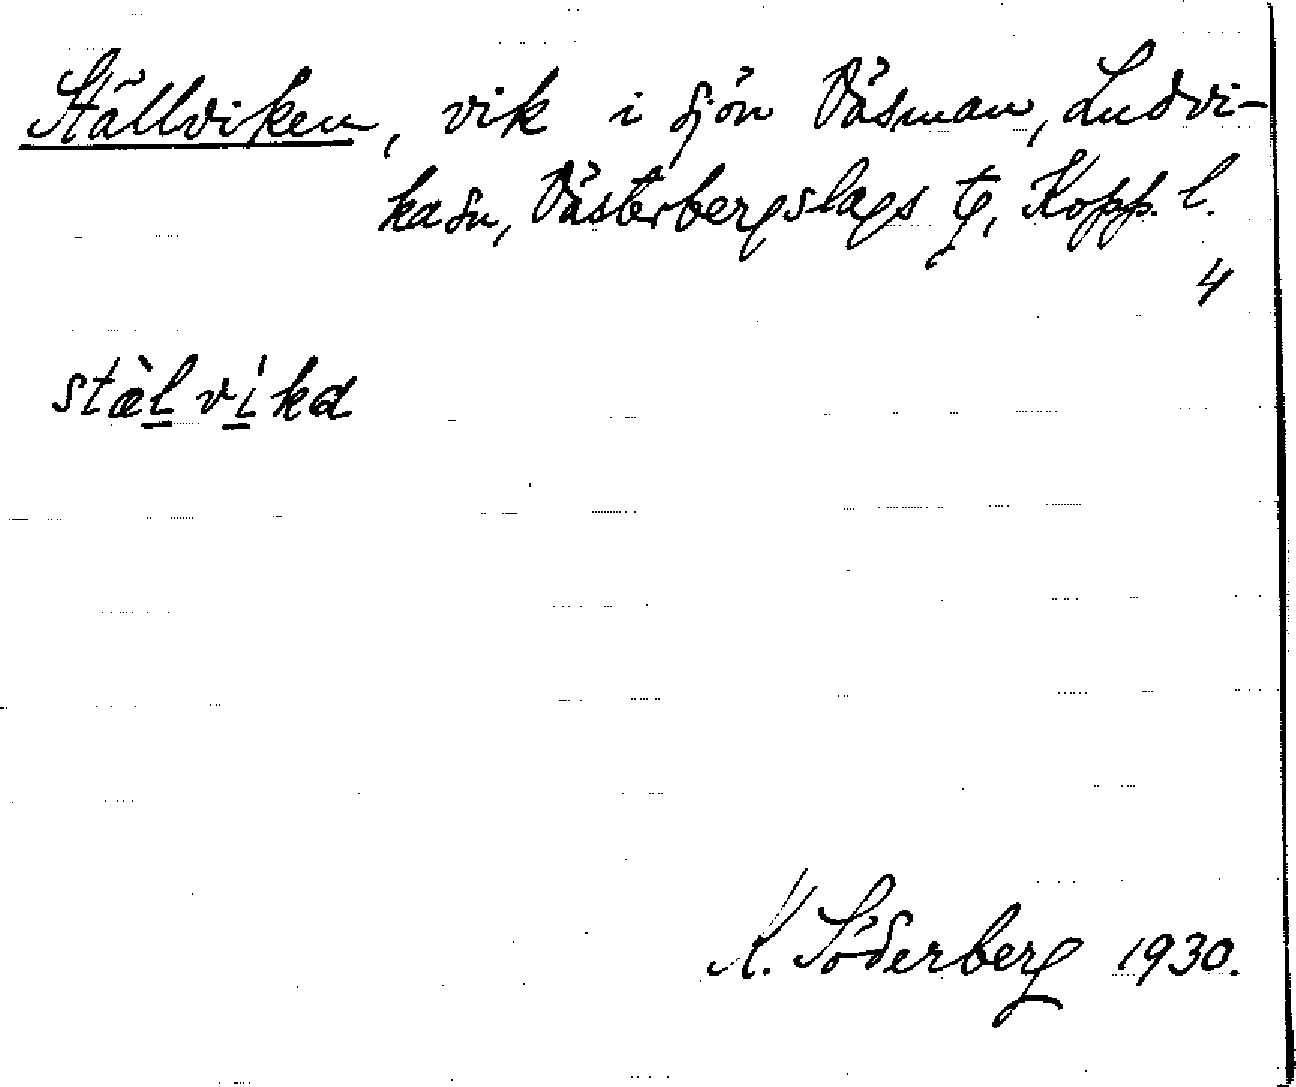 Ställviken, vik i sjön Väsman, Ludvi-
ka sn, Västerbergslags tg, Kopp. l.
4
stæ̀lvíka
K. Söderberg 1930.